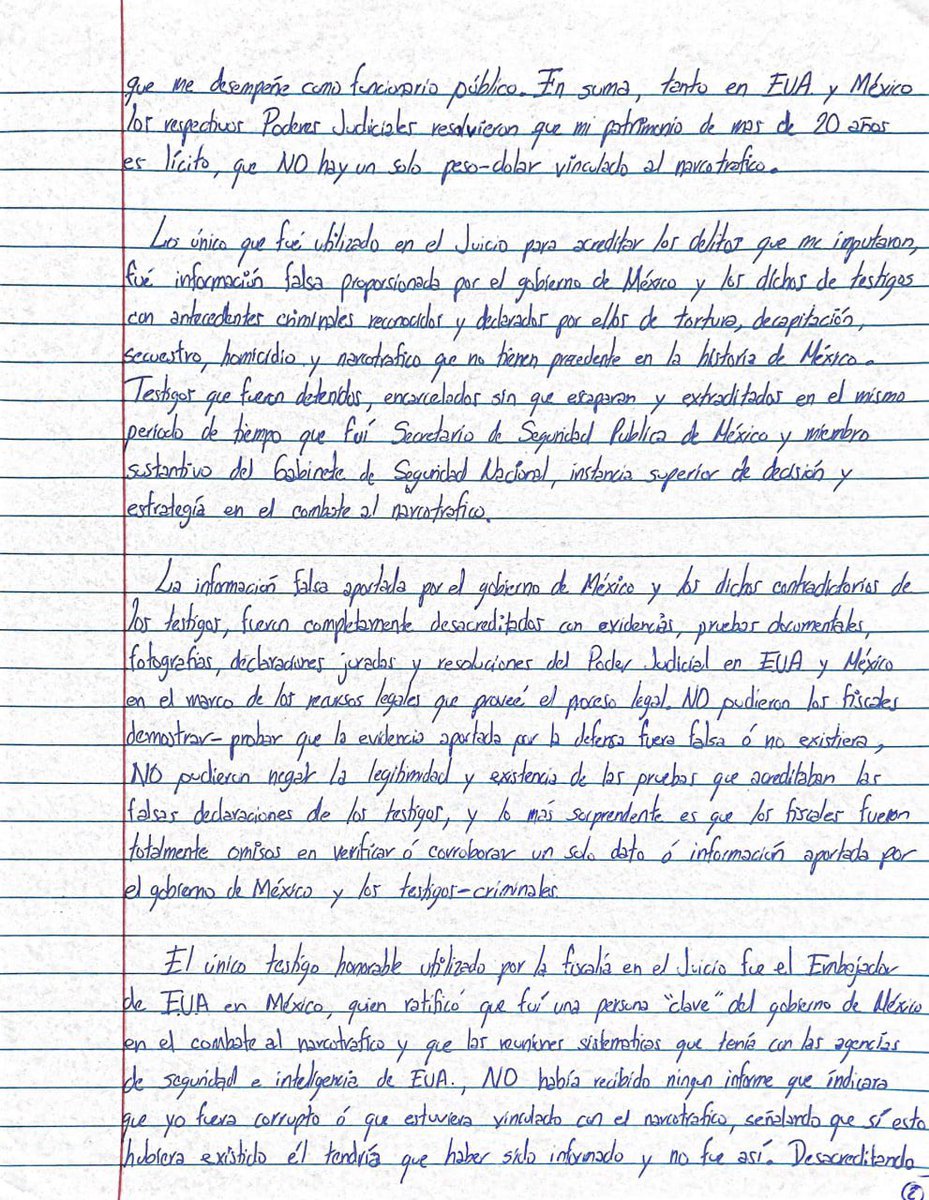 que me desempeñe como funcionario público. En suma, tanto en EUA y México
los respectivos Poderes Judiciales resolvieron que mi patrimonio de mas de 20 años
es lícito, que NO hay un solo peso-dolar vinculado al narcotrafico.
Los único que fué utilizado en el Juicio para acreditar los delitos que me imputaron,
fué información falsa proporsionada por el gobierno de México y los dichos de testigos
con antecedentes criminales reconocidos y declarados por ellos de tortura, decapitación,
secuestro, homicidio y narcotrafico que no tienen precedente en la historia de México.
Testigos que fueron detenidos, encarcelados sin que escaparan y extraditados en el mismo
periodo de tiempo que fuí Secretario de Seguridad Publica de México y miembro
sustantivo del Gabinete de Seguridad Nacional, instancia superior de decisión y
estrategía en el combate al narcotrafico.
La información falsa aportada por el gobierno de México y los dichos contradictorios de
los testigos, fueron completamente desacreditados con evidencias, pruebas documentales,
fotografias, declaraciones juradas y resoluciones del Poder Judicial en EUA y México
en el marco de los recursos legales que proveé el proceso legal. NO pudieron los fiscales
demostrar-probar que la evidencia aportada por la defensa fuera falsa ó no existiera,
NO pudieron negar la legitimidad y existencia de las pruebas que acreditaban las
falsas declaraciones de los testigos, y lo más sorprendente es que los fiscales fueron
totalmente omisos en verificar ó corroborar un solo dato ó información aportada por
el gobierno de México y los testigos-criminales.
El único testigo honorable utilizado por la fiscalía en el Juicio fue el Embajador
de EUA en México, quien ratificó que fuí una persona "clave" del gobierno de México
en el combate al narcotrafico y que las reuniones sistematicas que tenía con las agencías
de seguridad e inteligencia de EUA., NO había recibido ningun informe que indicara
que yo fuera corrupto ó que estuviera vinculado con el narcotrafico, señalando que sí esto
hubiera existido él tendría que haber sido informado y no fue así. Desacreditando
2